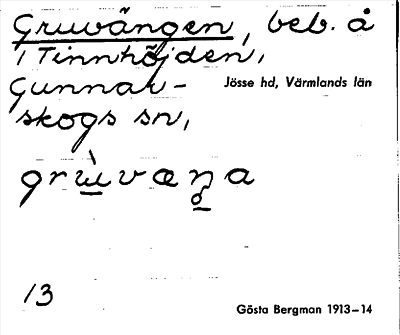 Gruvängen, beb. å
i Tinnhöjden,
Gunnar-
skogs sn,
Jösse hd, Värmlands län
grùvæŋa
13
Gösta Bergman 1913–14